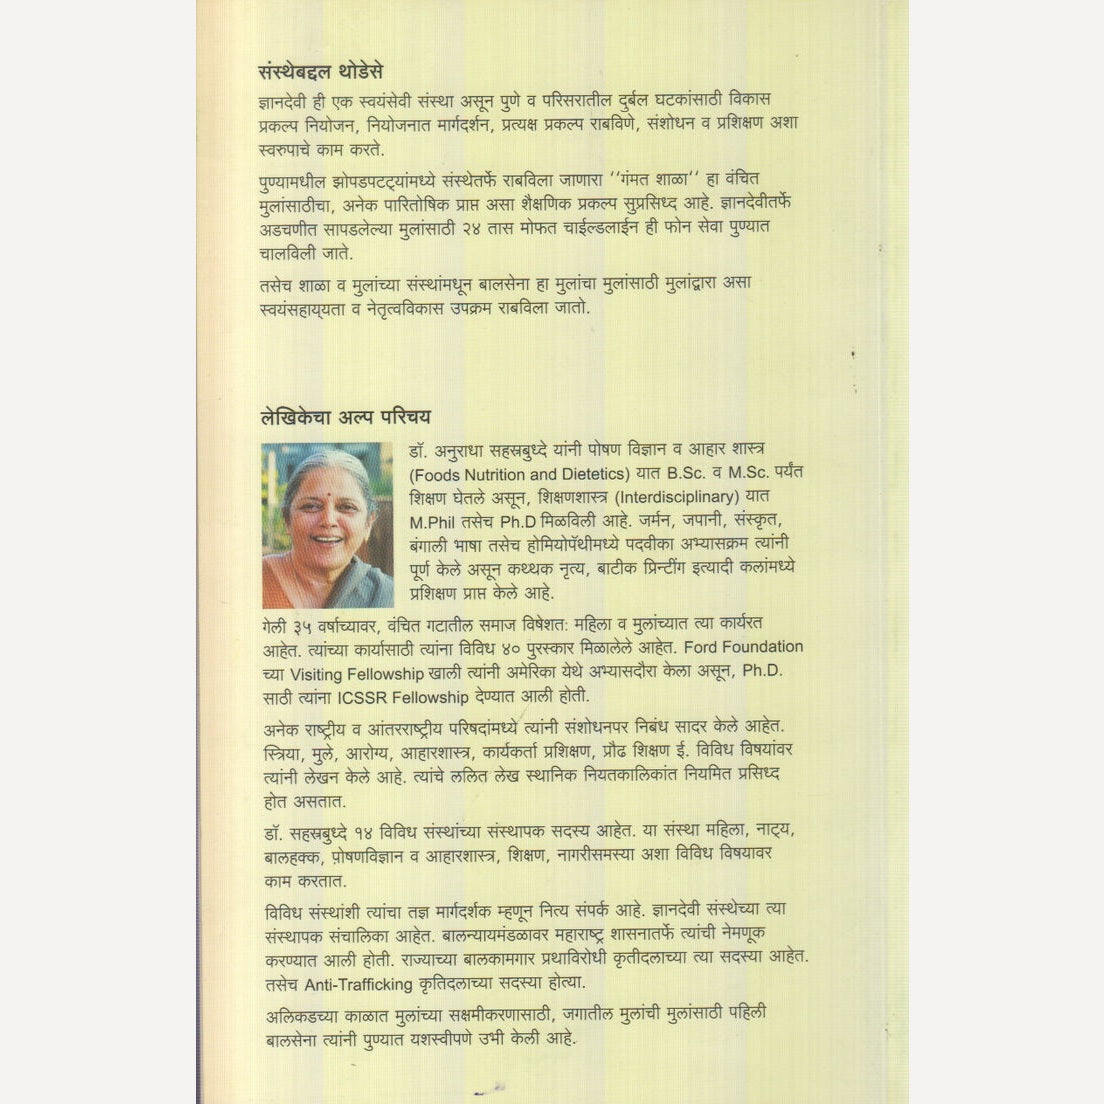 संस्थेबद्दल थोडेसे
ज्ञानदेवी ही एक स्वयंसेवी संस्था असून पुणे व परिसरातील दुर्बल घटकांसाठी विकास
प्रकल्प नियोजन, नियोजनात मार्गदर्शन, प्रत्यक्ष प्रकल्प राबविणे, संशोधन व प्रशिक्षण अशा
स्वरुपाचे काम करते.
पुण्यामधील झोपडपटट्यांमध्ये संस्थेतर्फे राबविला जाणारा ‘‘गंमत शाळा’’ हा वंचित
मुलांसाठीचा, अनेक पारितोषिक प्राप्त असा शैक्षणिक प्रकल्प सुप्रसिध्द आहे. ज्ञानदेवीतर्फे
अडचणीत सापडलेल्या मुलांसाठी २४ तास मोफत चाईल्डलाईन ही फोन सेवा पुण्यात
चालविली जाते.
तसेच शाळा व मुलांच्या संस्थांमधून बालसेना हा मुलांचा मुलांसाठी मुलांद्वारा असा
स्वयंसहाय्यता व नेतृत्वविकास उपक्रम राबविला जातो.
लेखिकेचा अल्प परिचय
डॉ. अनुराधा सहस्रबुध्दे यांनी पोषण विज्ञान व आहार शास्त्र
(Foods Nutrition and Dietetics) यात B.Sc. व M.Sc. पर्यंत
शिक्षण घेतले असून, शिक्षणशास्त्र (Interdisciplinary) यात
M.Phil तसेच Ph.D मिळविली आहे. जर्मन, जपानी, संस्कृत,
बंगाली भाषा तसेच होमियोपॅथीमध्ये पदवीका अभ्यासक्रम त्यांनी
पूर्ण केले असून कथ्थक नृत्य, बाटीक प्रिन्टींग इत्यादी कलांमध्ये
प्रशिक्षण प्राप्त केले आहे.
गेली ३५ वर्षाच्यावर, वंचित गटातील समाज विषेशत: महिला व मुलांच्यात त्या कार्यरत
आहेत. त्यांच्या कार्यासाठी त्यांना विविध ४० पुरस्कार मिळालेले आहेत. Ford Foundation
च्या Visiting Fellowship खाली त्यांनी अमेरिका येथे अभ्यासदौरा केला असून, Ph.D.
साठी त्यांना ICSSR Fellowship देण्यात आली होती.
अनेक राष्ट्रीय व आंतरराष्ट्रीय परिषदांमध्ये त्यांनी संशोधनपर निबंध सादर केले आहेत.
स्त्रिया, मुले, आरोग्य, आहारशास्त्र, कार्यकर्ता प्रशिक्षण, प्रौढ शिक्षण ई. विविध विषयांवर
त्यांनी लेखन केले आहे. त्यांचे ललित लेख स्थानिक नियतकालिकांत नियमित प्रसिध्द
होत असतात.
डॉ. सहस्रबुध्दे १४ विविध संस्थांच्या संस्थापक सदस्य आहेत. या संस्था महिला, नाट्य,
बालहक्क, पोषणविज्ञान व आहारशास्त्र, शिक्षण, नागरीसमस्या अशा विविध विषयावर
काम करतात.
विविध संस्थांशी त्यांचा तज्ञ मार्गदर्शक म्हणून नित्य संपर्क आहे. ज्ञानदेवी संस्थेच्या त्या
संस्थापक संचालिका आहेत. बालन्यायमंडळावर महाराष्ट्र शासनातर्फे त्यांची नेमणूक
करण्यात आली होती. राज्याच्या बालकामगार प्रथाविरोधी कृतीदलाच्या त्या सदस्या आहेत.
तसेच Anti-Trafficking कृतिदलाच्या सदस्या होत्या.
अलिकडच्या काळात मुलांच्या सक्षमीकरणासाठी, जगातील मुलांची मुलांसाठी पहिली
बालसेना त्यांनी पुण्यात यशस्वीपणे उभी केली आहे.